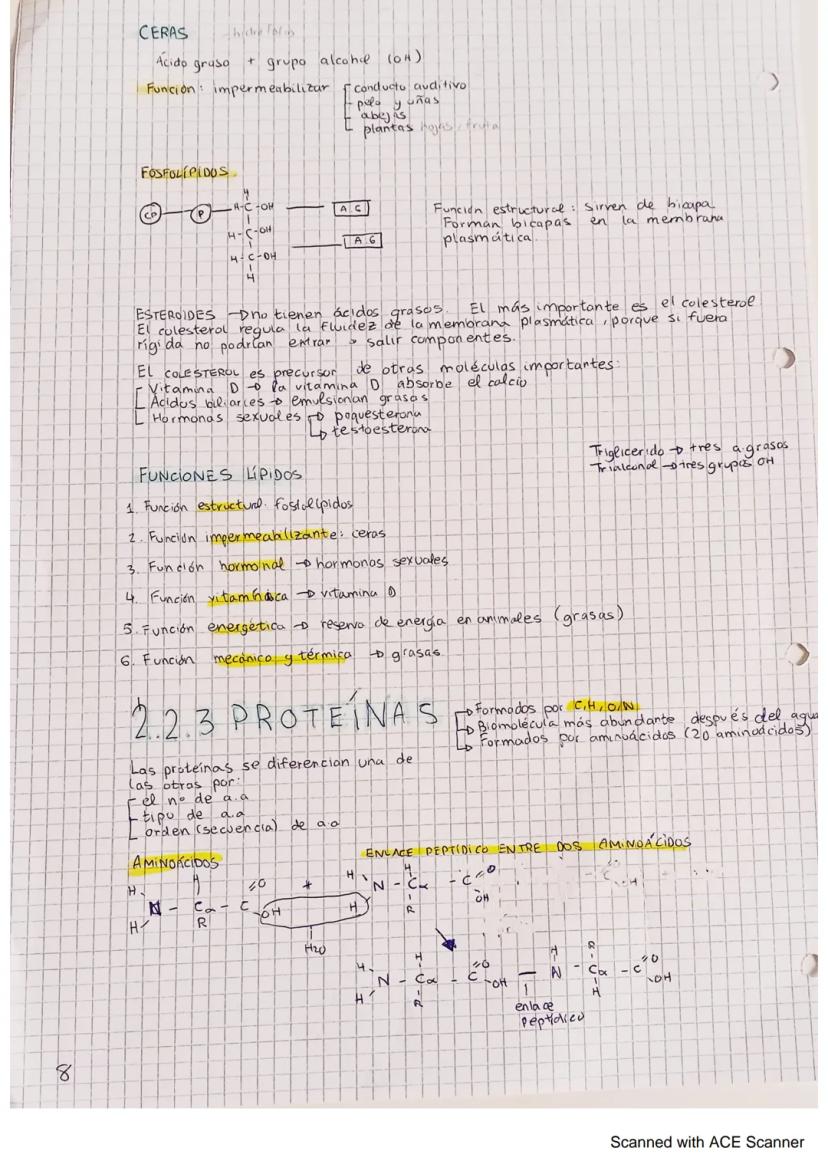 CERAS
Ácido graso + grupo alcohol (OH)
Función: impermeabilizar
conducto auditivo
pelo y uñas
abejas
plantas hojas, fruta
FOSFOLÍPIDOS
H
P
H-C-OH
A.G
H-C-OH
A.G
H-C-OH
H
Función estructural: sirven de bicapa
Forman bicapas en la membrana
plasmática.
ESTEROIDES → no tienen ácidos grasos. El más importante es el colesterol
El colesterol regula la fluidez de la membrana plasmática, porque si fuera
rígida no podrían entrar o salir componentes.
El COLESTEROL es precursor de otras moléculas importantes:
Vitamina D → la vitamina D absorbe el calcio
Ácidos biliares → emulsionan grasas
Hormonas sexuales → poquesterona
↳ testoesterona
Triglicerido → tres a.grasos
Trialcohol → tres grupos OH
FUNCIONES LÍPIDOS
1. Función estructural: fosfolípidos
2. Función impermeabilizante: ceras
3. Función hormonal → hormonas sexuales
4. Función vitamínica → vitamina D
5. Función energética → reserva de energía en animales (grasas)
6. Función mecánico y térmica → grasas
2.2.3 PROTEÍNAS
→ Formados por C,H,O,N
→ Biomolécula más abundante después del agua
→ Formados por aminoácidos (20 aminoácidos)
Las proteínas se diferencian una de
las otras por:
el nº de a.a
tipo de a.a
orden (secuencia) de a.a
AMINOÁCIDOS
ENLACE PEPTÍDICO ENTRE DOS AMINOÁCIDOS
H H O + H H O
N - Cα - C OH H N - Cα - C OH
H R R
H2O
H H O H R O
N - Cα - C -OH — N - Cα - C OH
H R H
enlace
peptídico
8
Scanned with ACE Scanner